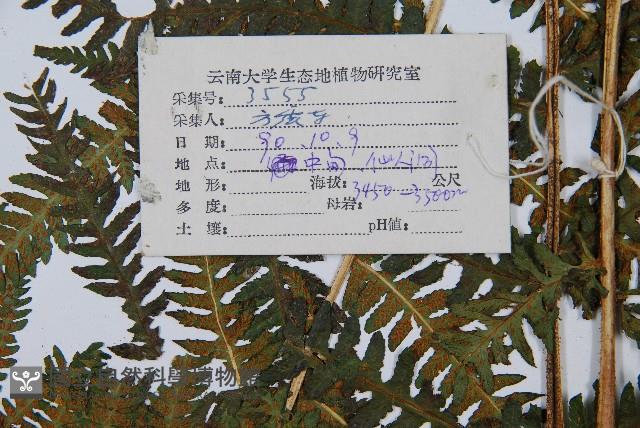 云南大学生态地植物研究室
采集号: 3555
采集人:
日 期: 90.10.9
地 点: 中甸
地 形: 海拔: 3450-3500m 公尺
多 度: 母岩:
土 壤: pH值:
國立自然科學博物館